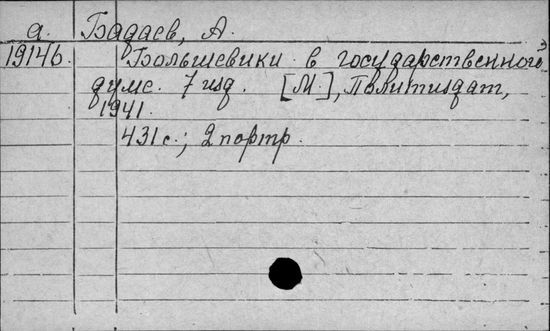 а. Бадаев, А.
1914б. Большевики в государственного
думе. 7 изд. [М.], Политиздат,
1941.
431 с.; 2 портр.